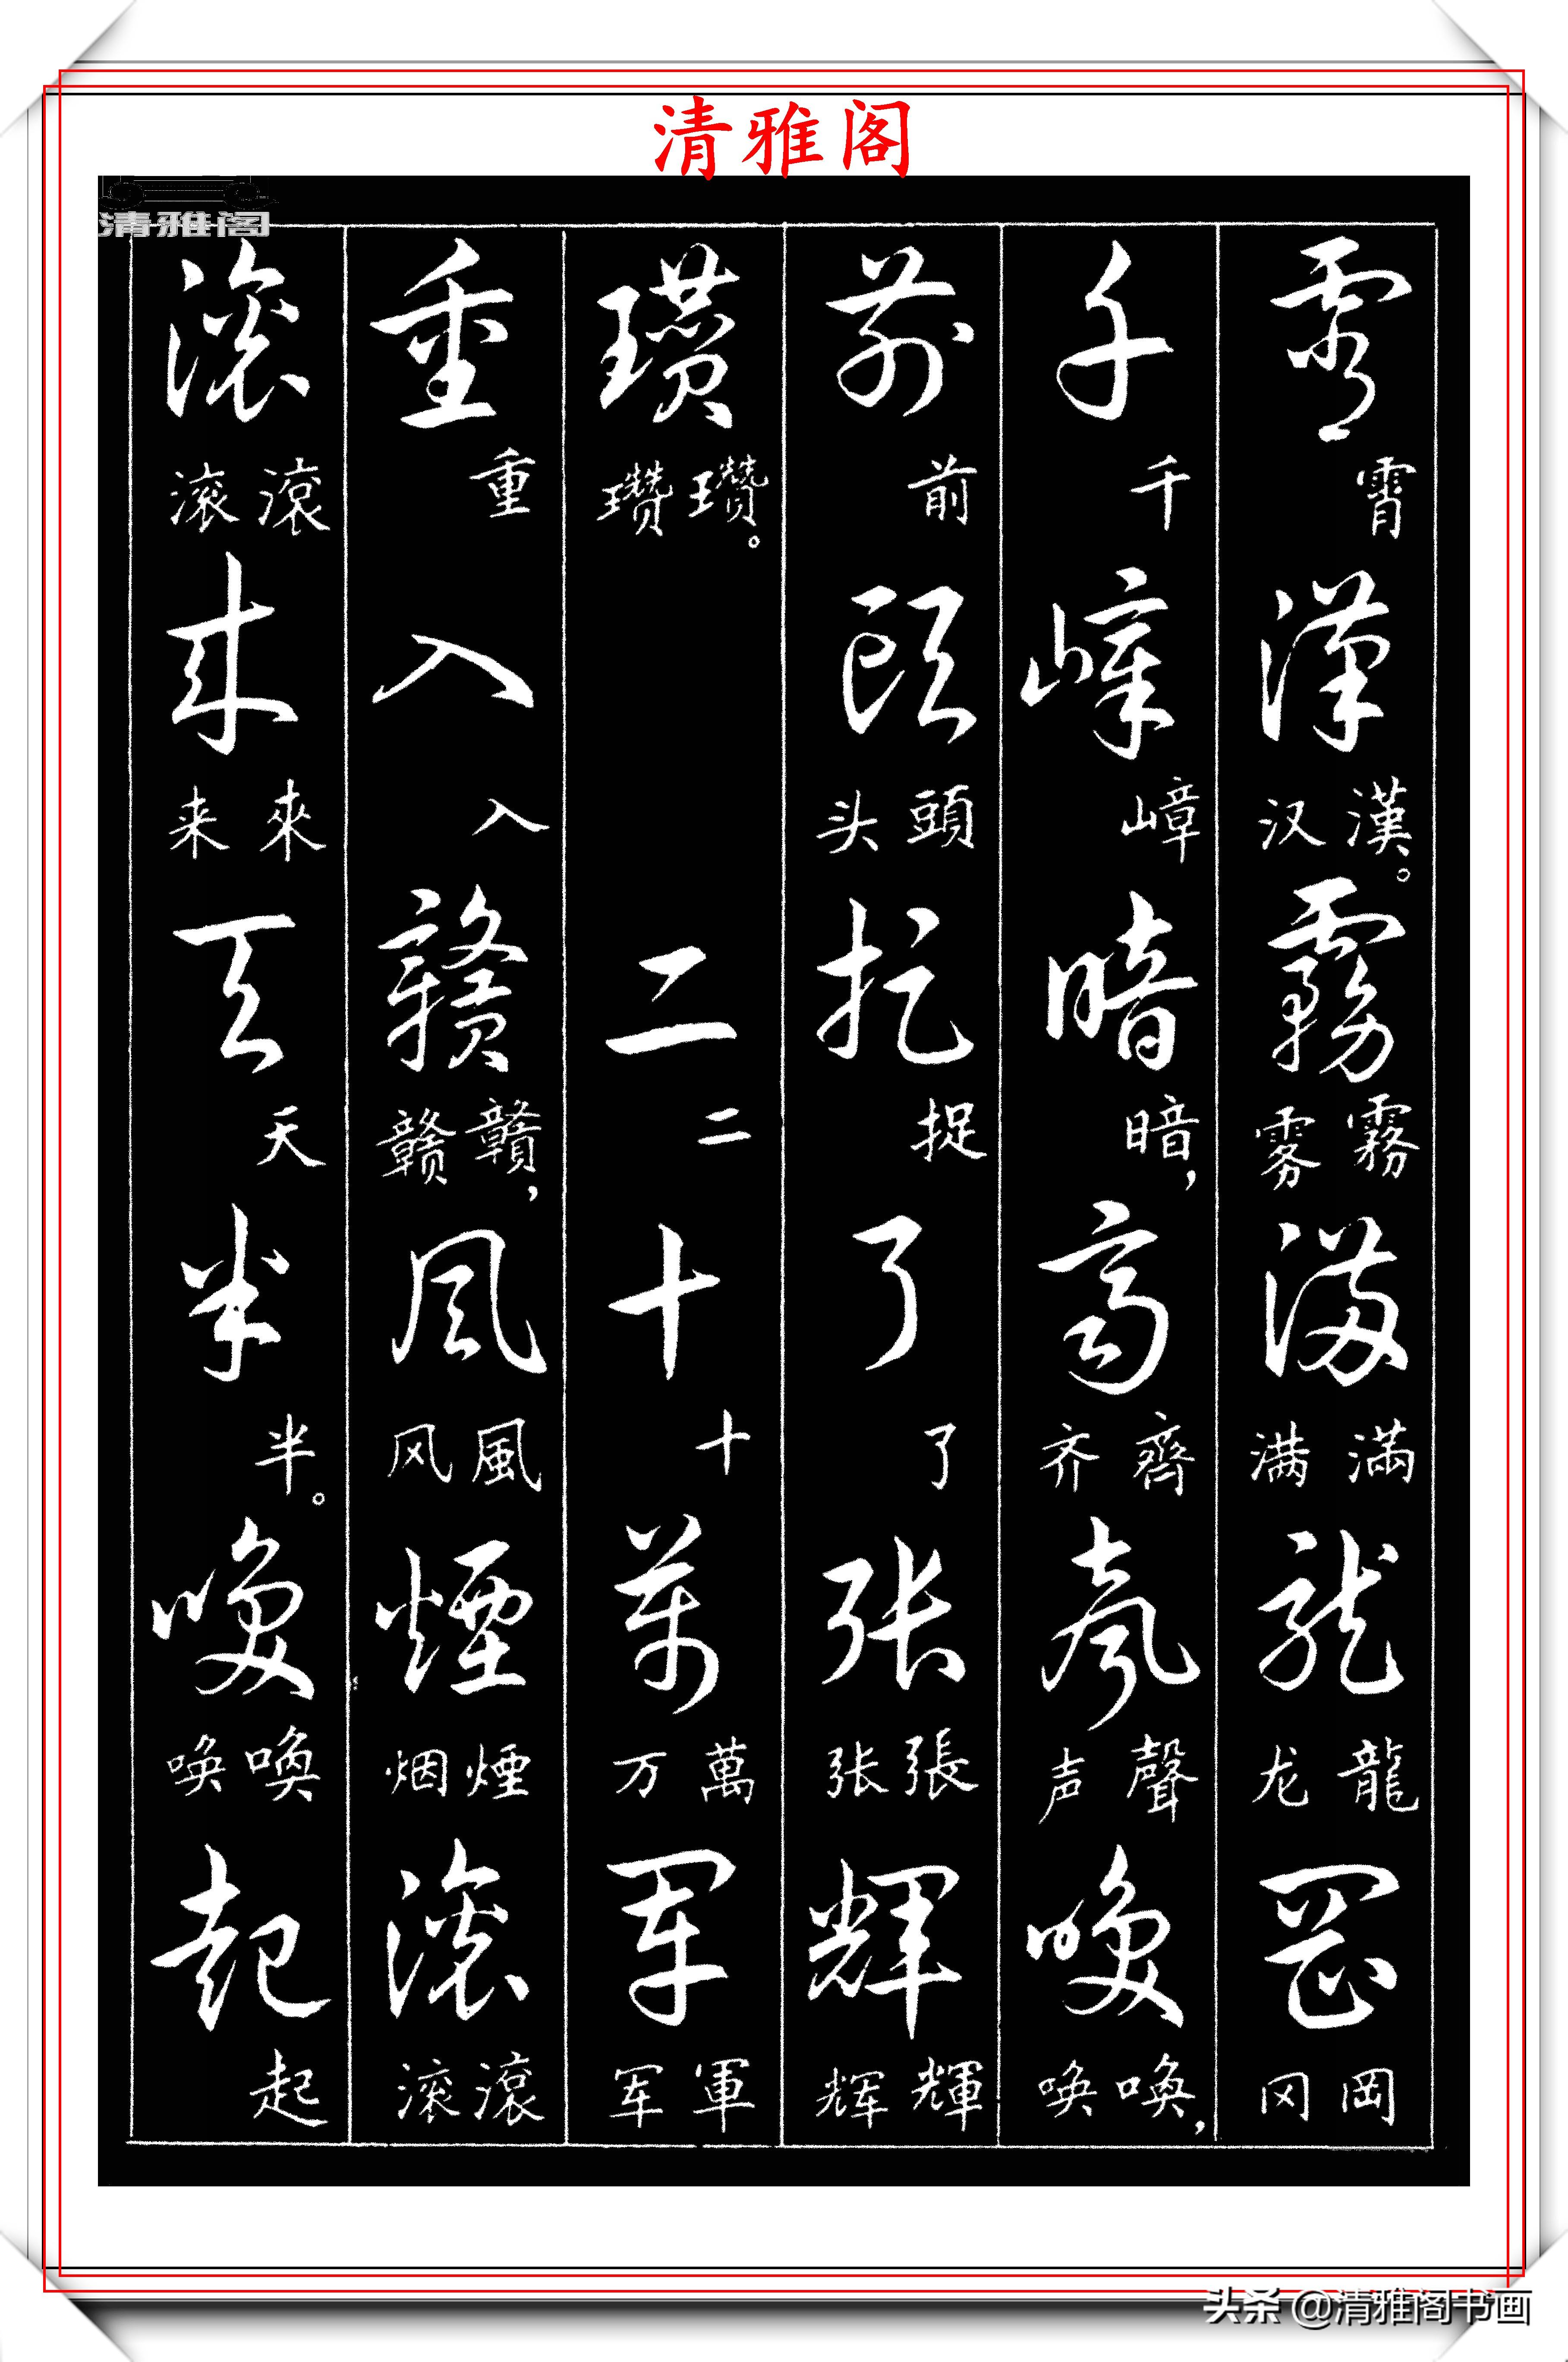 清雅阁
清雅阁
霄 霄 漢 漢。汉 霧 霧雾 滿 滿满 龍 龍龙 岡 岡冈
千 千 嶂 嶂 暗 暗, 齊 齊齐 聲 聲声 唤 喚,唤
前 前 頭 頭头 捉 捉 了 了 張 張张 輝 輝辉
瓒 瓚。瓒 二 二 十 十 萬 萬万 軍 軍军
重 重 入 入 赣 贛,赣 風 風风 煙 煙烟 滚 滾滚
滚 滾滚 来 來来 天 天 半 半。 唤 喚唤 起 起
头条 @清雅阁书画